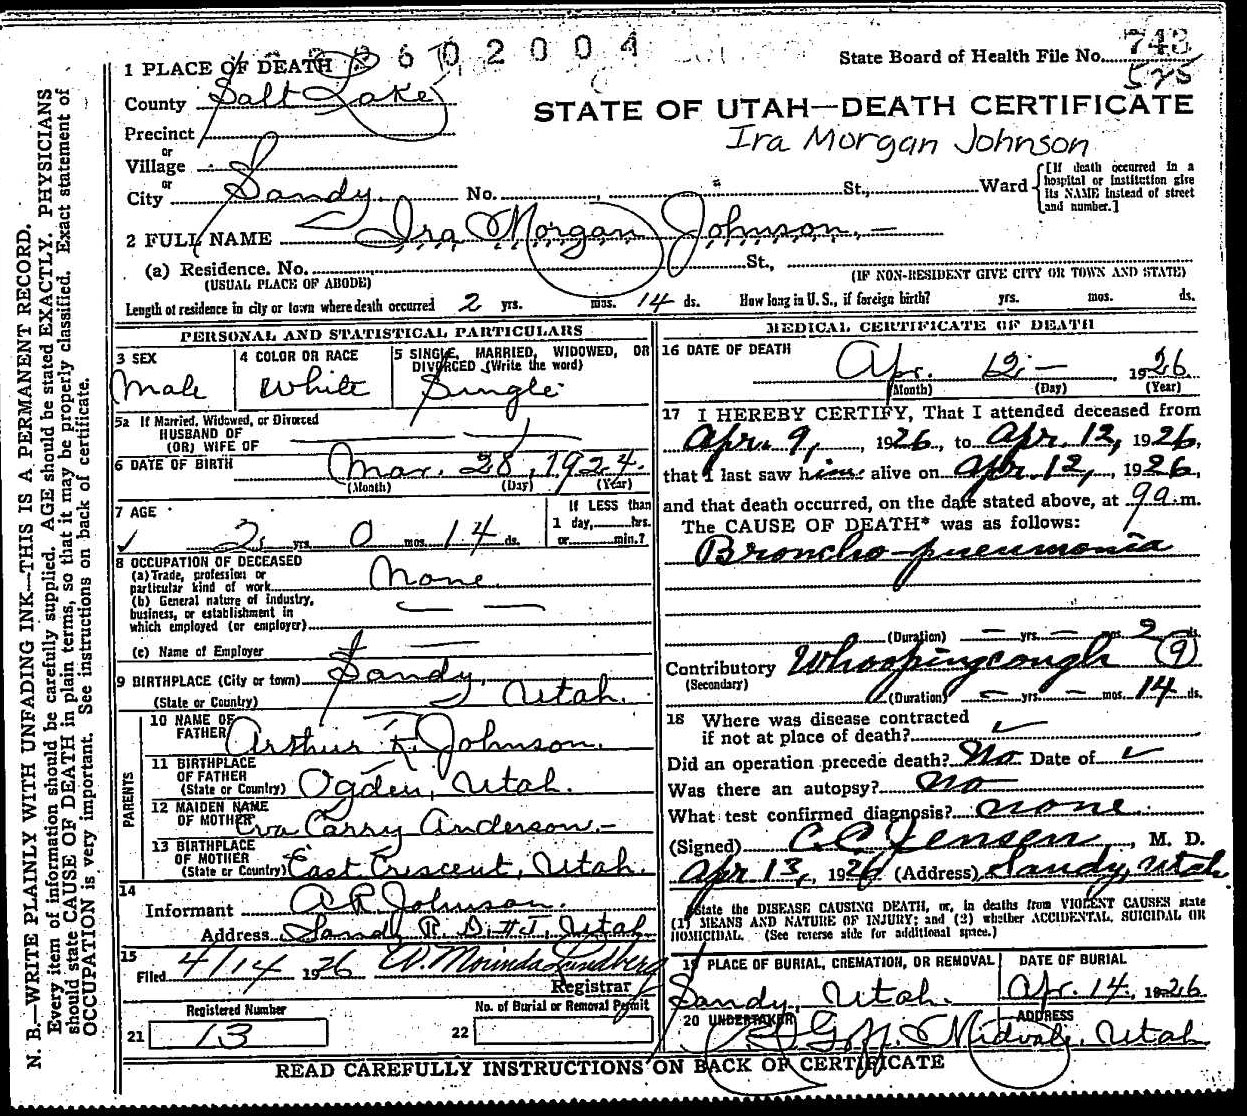 602004
State Board of Health File No. 743
525
1 PLACE OF DEATH
County Salt Lake
STATE OF UTAH—DEATH CERTIFICATE
Precinct
Ira Morgan Johnson
or
Village
or
City Sandy. No. St., Ward
[If death occurred in a hospital or institution give its NAME instead of street and number.]
2 FULL NAME Ira Morgan Johnson.
(a) Residence. No. St.,
(USUAL PLACE OF ABODE) (IF NON-RESIDENT GIVE CITY OR TOWN AND STATE)
Length of residence in city or town where death occurred 2 yrs. mos. 14 ds. How long in U. S., if foreign birth? yrs. mos. ds.
PERSONAL AND STATISTICAL PARTICULARS
3 SEX
Male
4 COLOR OR RACE
White
5 SINGLE, MARRIED, WIDOWED, OR DIVORCED (Write the word)
Single
5a If Married, Widowed, or Divorced
HUSBAND OF
(OR) WIFE OF
6 DATE OF BIRTH Mar. 28, 1924.
(Month) (Day) (Year)
7 AGE
2 yrs. 0 mos. 14 ds.
If LESS than
1 day, hrs.
or min.?
8 OCCUPATION OF DECEASED
(a) Trade, profession or
particular kind of work None
(b) General nature of industry,
business, or establishment in
which employed (or employer)
(c) Name of Employer
9 BIRTHPLACE (City or town) Sandy,
(State or Country) Utah.
PARENTS
10 NAME OF
FATHER Arthur R. Johnson.
11 BIRTHPLACE
OF FATHER
(State or Country) Ogden, Utah.
12 MAIDEN NAME
OF MOTHER Eva Carry Anderson.
13 BIRTHPLACE
OF MOTHER
(State or Country) East Crescent, Utah.
14
Informant A R Johnson.
Address Sandy R. D. #1, Utah
15
Filed 4/14 1926 W. Morinda Lundberg
Registrar
Registered Number
21 13
No. of Burial or Removal Permit
22
MEDICAL CERTIFICATE OF DEATH
16 DATE OF DEATH
Apr. 12 , 1926
(Month) (Day) (Year)
17 I HEREBY CERTIFY, That I attended deceased from
Apr. 9, , 1926, to Apr. 12, 1926,
that I last saw him alive on Apr. 12, , 1926,
and that death occurred, on the date stated above, at 9 a.m.
The CAUSE OF DEATH* was as follows:
Broncho-pneumonia
(Duration) — yrs. — mos. 2 ds.
Contributory Whooping cough (9)
(Secondary)
(Duration) — yrs. — mos. 14 ds.
18 Where was disease contracted
if not at place of death?
Did an operation precede death? No Date of
Was there an autopsy? no
What test confirmed diagnosis? none
(Signed) C. C. Jensen , M. D.
Apr 13, , 1926 (Address) Sandy, Utah
State the DISEASE CAUSING DEATH, or, in deaths from VIOLENT CAUSES state
(1) MEANS AND NATURE OF INJURY; and (2) whether ACCIDENTAL, SUICIDAL OR
HOMICIDAL. (See reverse side for additional space.)
19 PLACE OF BURIAL, CREMATION, OR REMOVAL
Sandy, Utah.
DATE OF BURIAL
Apr. 14, 1926
20 UNDERTAKER
Goff
ADDRESS
Midvale, Utah
READ CAREFULLY INSTRUCTIONS ON BACK OF CERTIFICATE
N. B.—WRITE PLAINLY WITH UNFADING INK—THIS IS A PERMANENT RECORD.
Every item of information should be carefully supplied. AGE should be stated EXACTLY. PHYSICIANS
should state CAUSE OF DEATH in plain terms, so that it may be properly classified. Exact statement of
OCCUPATION is very important. See instructions on back of certificate.